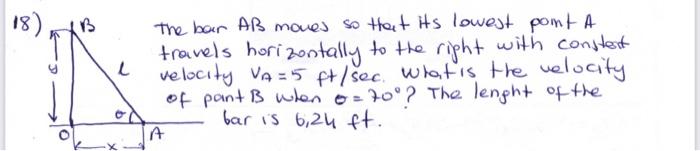 18)
B
The bar AB moves so that its lowest point A
travels horizontally to the right with constant
velocity VA = 5 ft/sec. What is the velocity
of point B when θ = 70°? The lenght of the
bar is 6,24 ft.
y
L
θ
O
x
A